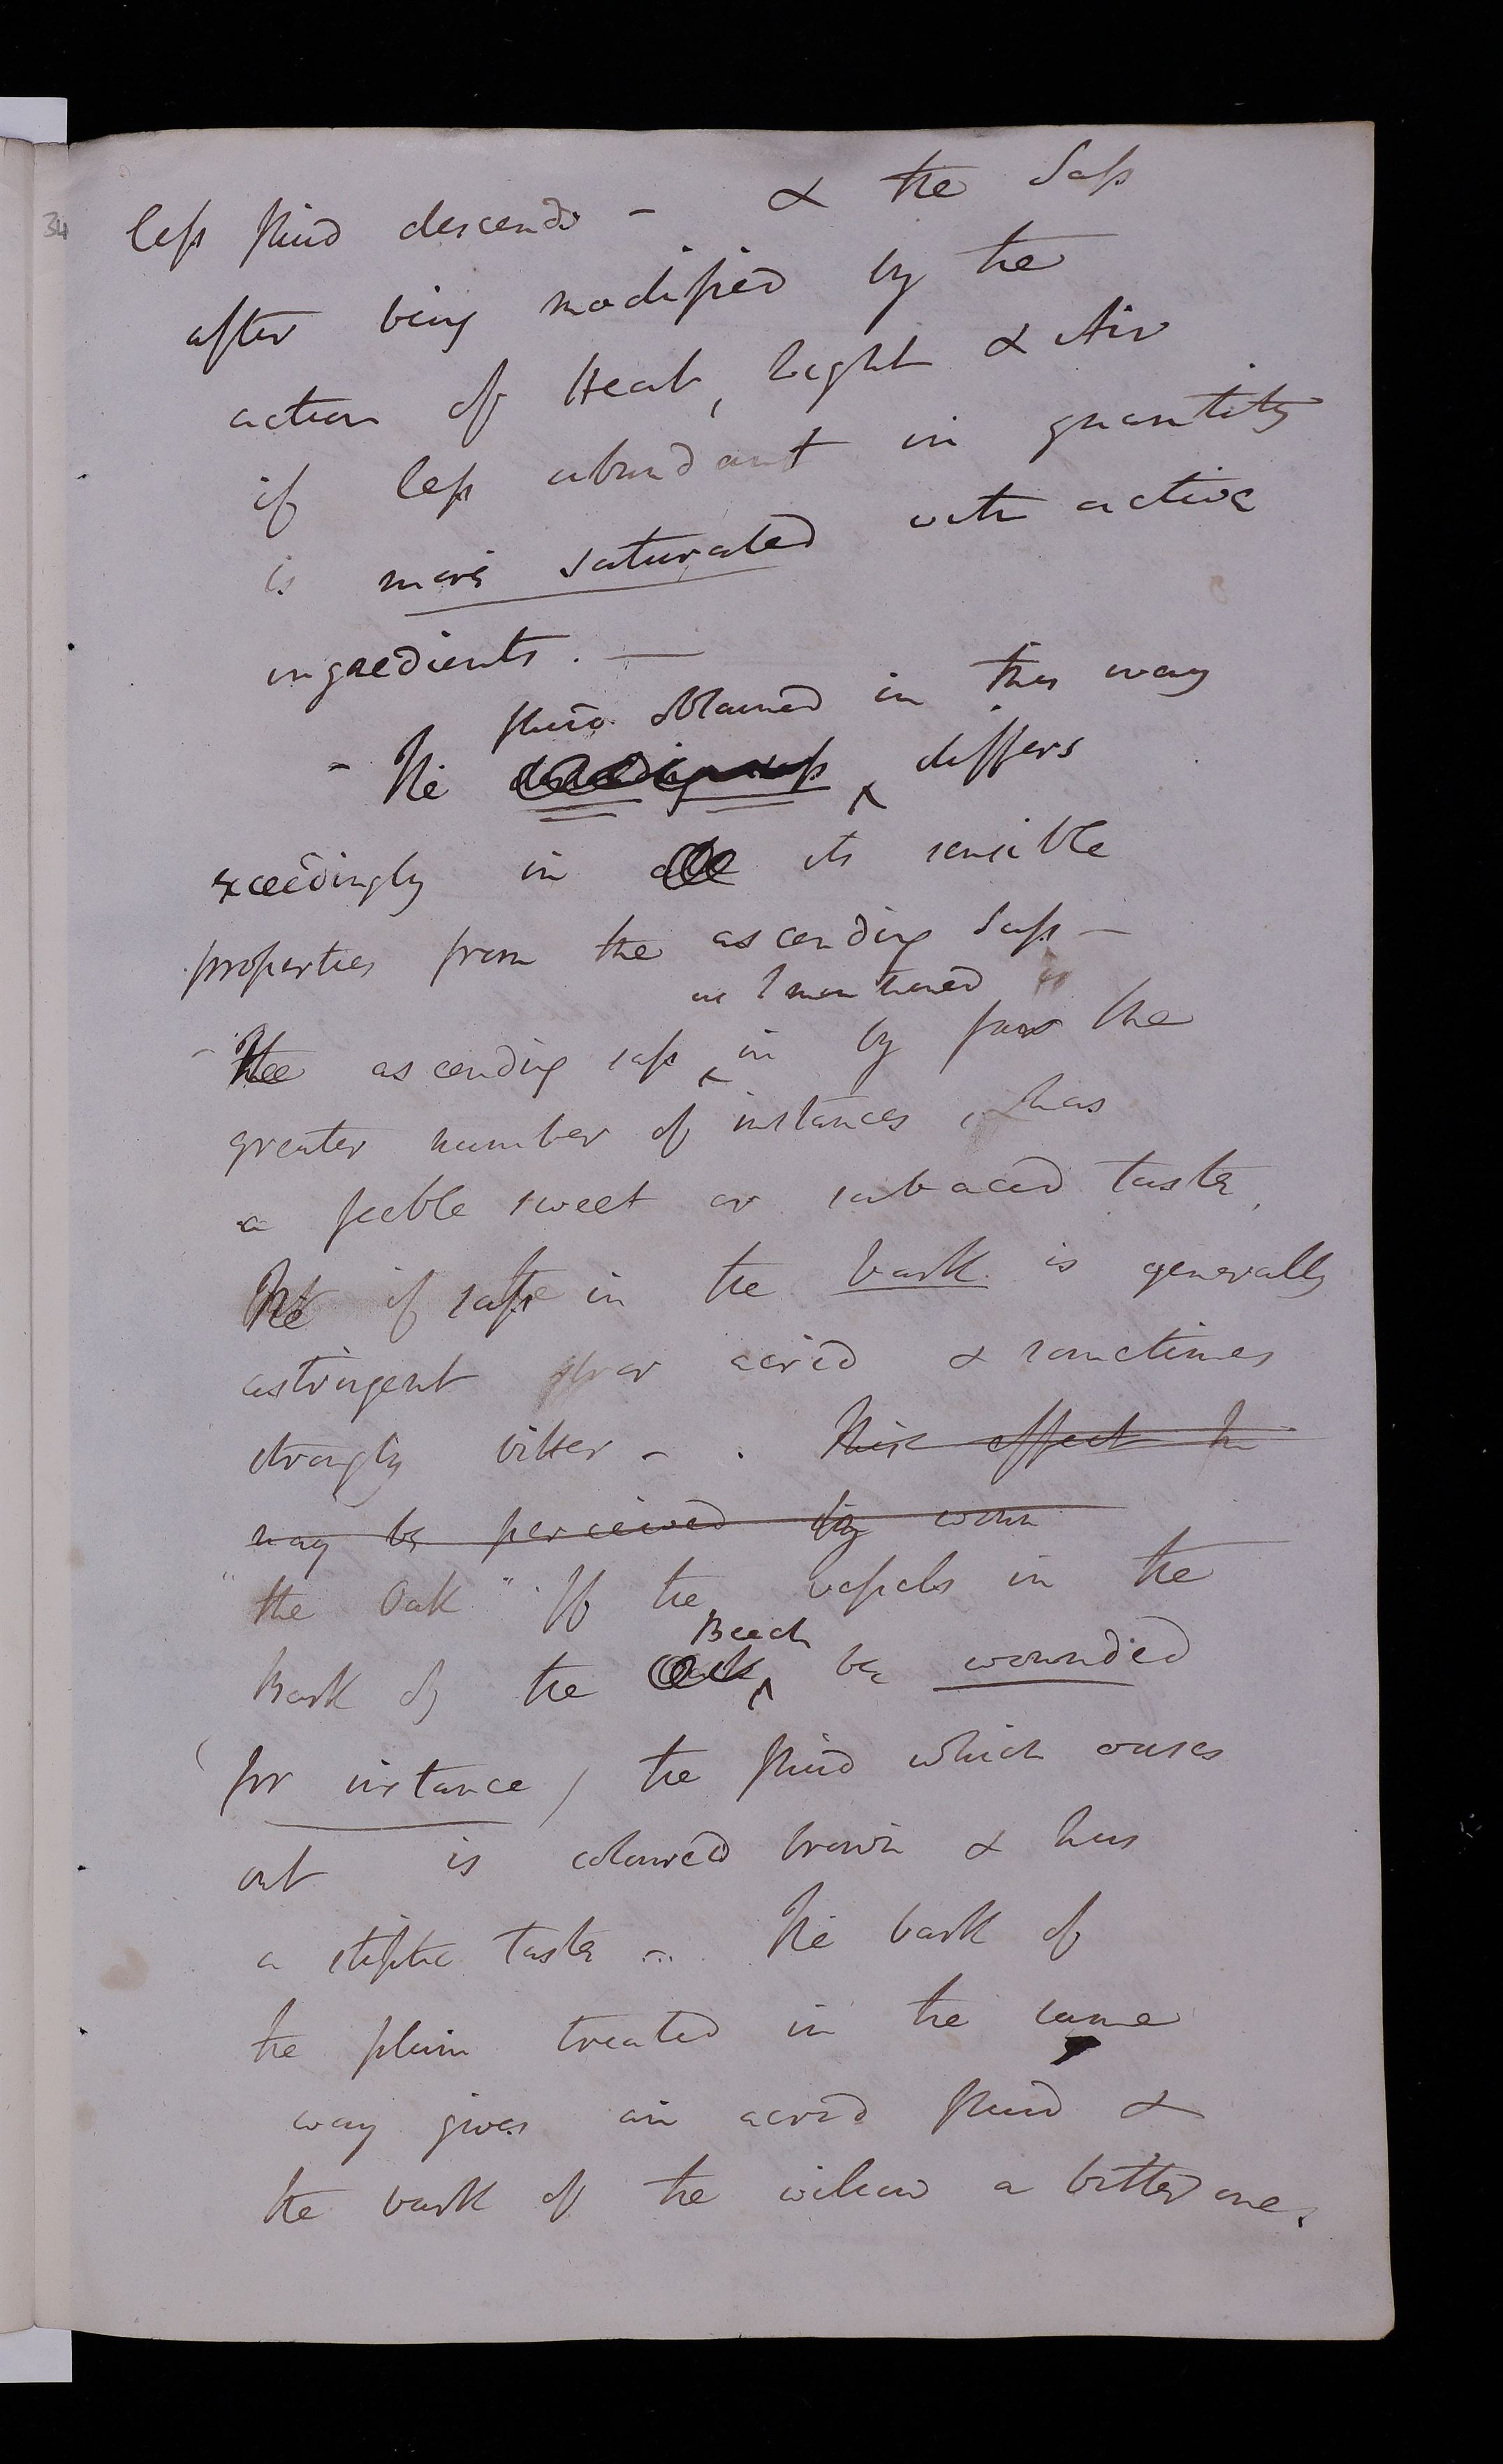 34
less fluid descends – & the Sap
after being modified by the
action of Heat, Light & Air
if less abundant in quantity
is more saturated with active
ingredients. —
fluid obtained in this way
– The descending sap differs
exceedingly in its sensible
properties from the ascending Sap –
as I mentioned
– The ascending sap in by far the
greater number of instances, has
a feeble sweet or subacid taste.
The sap in the bark is generally
astringent or acrid & sometimes
strongly bitter – . This effect
may be perceived by woun
"the Oak" If the vessels in the
Beech
Bark of the Oak be wounded
(for instance) the fluid which ouses
out is coloured brown & has
a stiptic taste – The bark of
the plum treated in the same
way gives an acrid fluid &
the bark of the willow a bitter one.